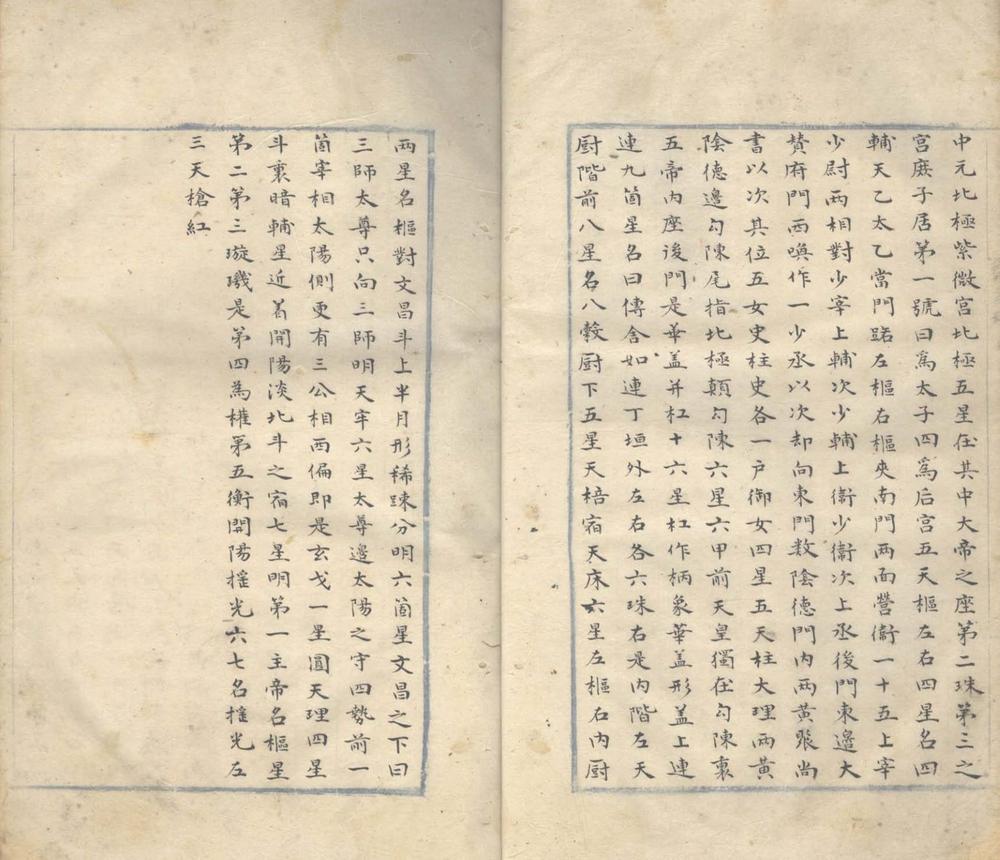 中元北極紫微宮北極五星在其中大帝之座第二珠第三之
宮庶子居第一號曰爲太子四爲后宮五天樞左右四星名四
輔天乙太乙當門踞左樞右樞夾南門兩面營衛一十五上宰
少尉兩相對少宰上輔次少輔上衛少衛次上丞後門東邉大
賛府門西喚作一少丞以次却向東門数陰德門內兩黄聚尚
書以次其位五女史柱史各一户御女四星五天柱大理兩黄
陰德邉勾陳尾指北極顛勾陳六星六甲前天皇獨在勾陳裏
五帝內座後門是華盖并杠十六星杠作柄象華盖形盖上連
連九箇星名曰傳舍如連丁垣外左右各六珠右是內階左天
厨階前八星名八糓厨下五星天棓宿天床六星左樞右內厨
兩星名樞對文昌斗上半月形稀踈分明六箇星文昌之下曰
三師太尊只向三師明天牢六星太尊邉太陽之守四勢前一
箇宰相太陽側更有三公相西偏即是玄戈一星圓天理四星
斗裏暗輔星近着開陽淡北斗之宿七星明第一主帝名樞星
第二第三璇璣是第四為權第五衡開陽摇光六七名摇光左
三天槍紅